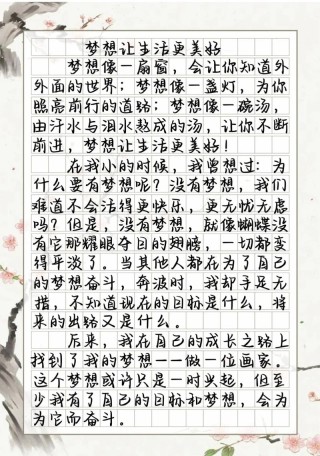 梦想让生活更美好
梦想像一扇窗，会让你知道外
外面的世界；梦想像一盏灯，为你
照亮前行的道路；梦想像一碗汤，
由汗水与泪水熬成的汤，让你不断
前进，梦想让生活更美好！
在我小的时候，我曾想过：为
什么要有梦想呢？没有梦想，我们
难道不会活得更快乐，更无忧无虑
吗？但是，没有梦想，就像蝴蝶没
有它那耀眼夺目的翅膀，一切都变
得平淡了。当其他人都在为了自己
的梦想奋斗，奔波时，我却手足无
措，不知道现在的目标是什么，将
来的出路又是什么。
后来，我在自己的成长之路上
找到了我的梦想一一做一位画家。
这个梦想或许只是一时兴起，但至
少我有了自己的目标和梦想，会为
为它而奋斗。